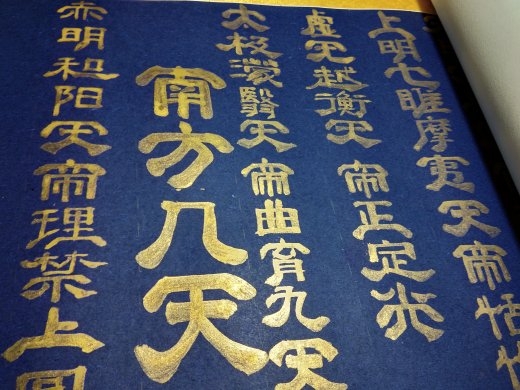 上明七曜摩夷天帝恬
虛无越衡天帝正定光
太極濛翳天帝曲育九天
南方八天
赤明和陽天帝理禁上